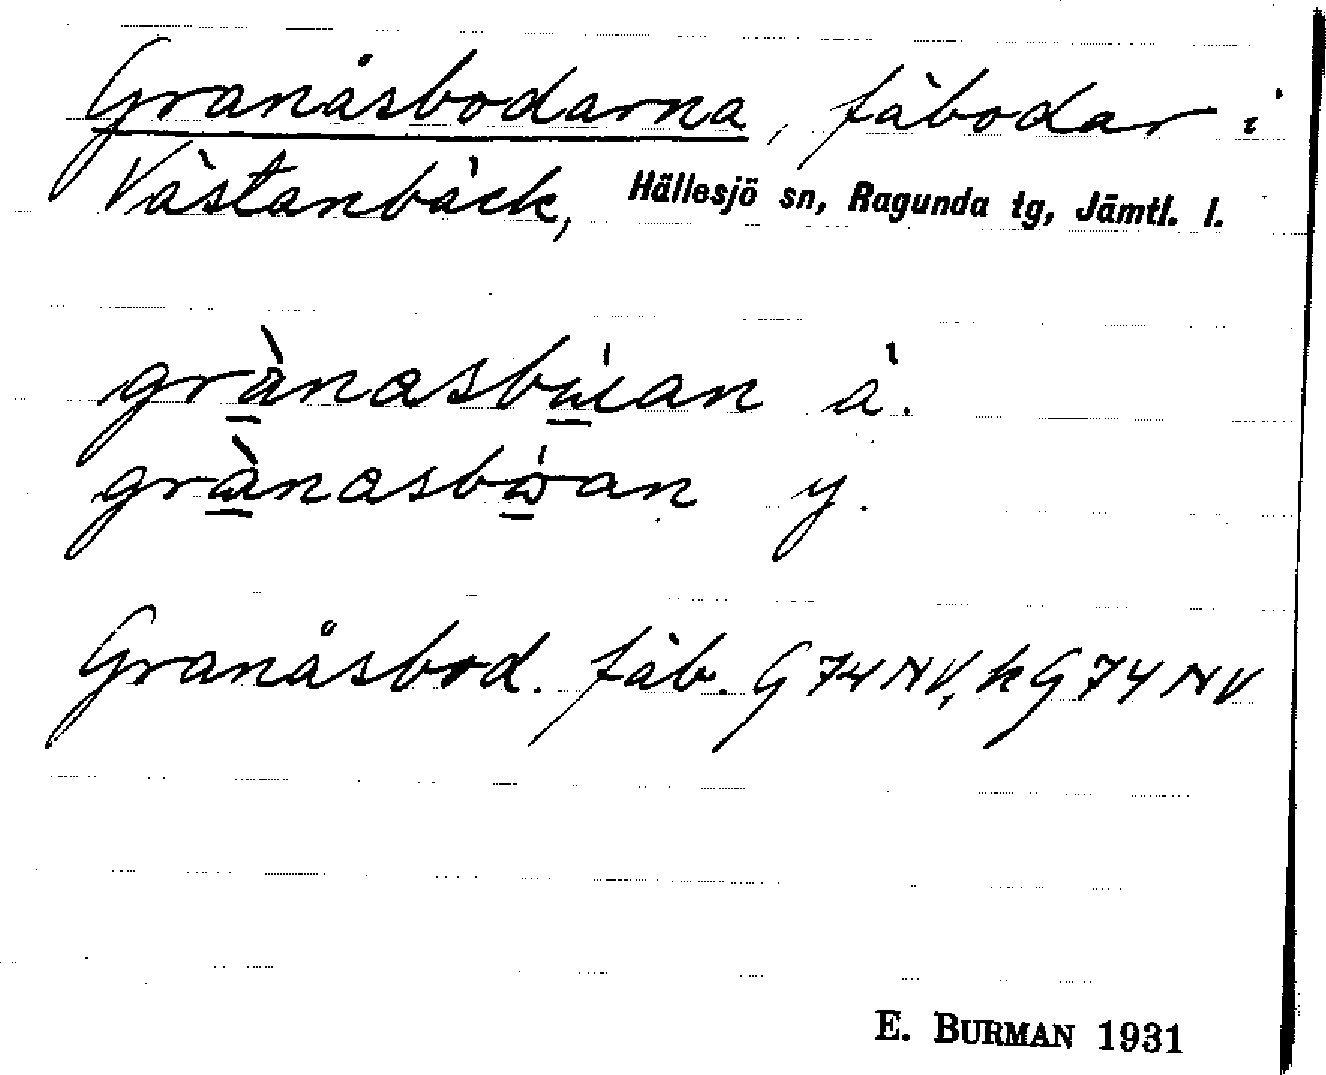 Granåsbodarna, fäbodar i
Västanbäck, Hällesjö sn, Ragunda tg, Jämtl. l.
ä.
y.
Granåsbod. fäb. G 74 NV, k G 74 NV
E. BURMAN 1931